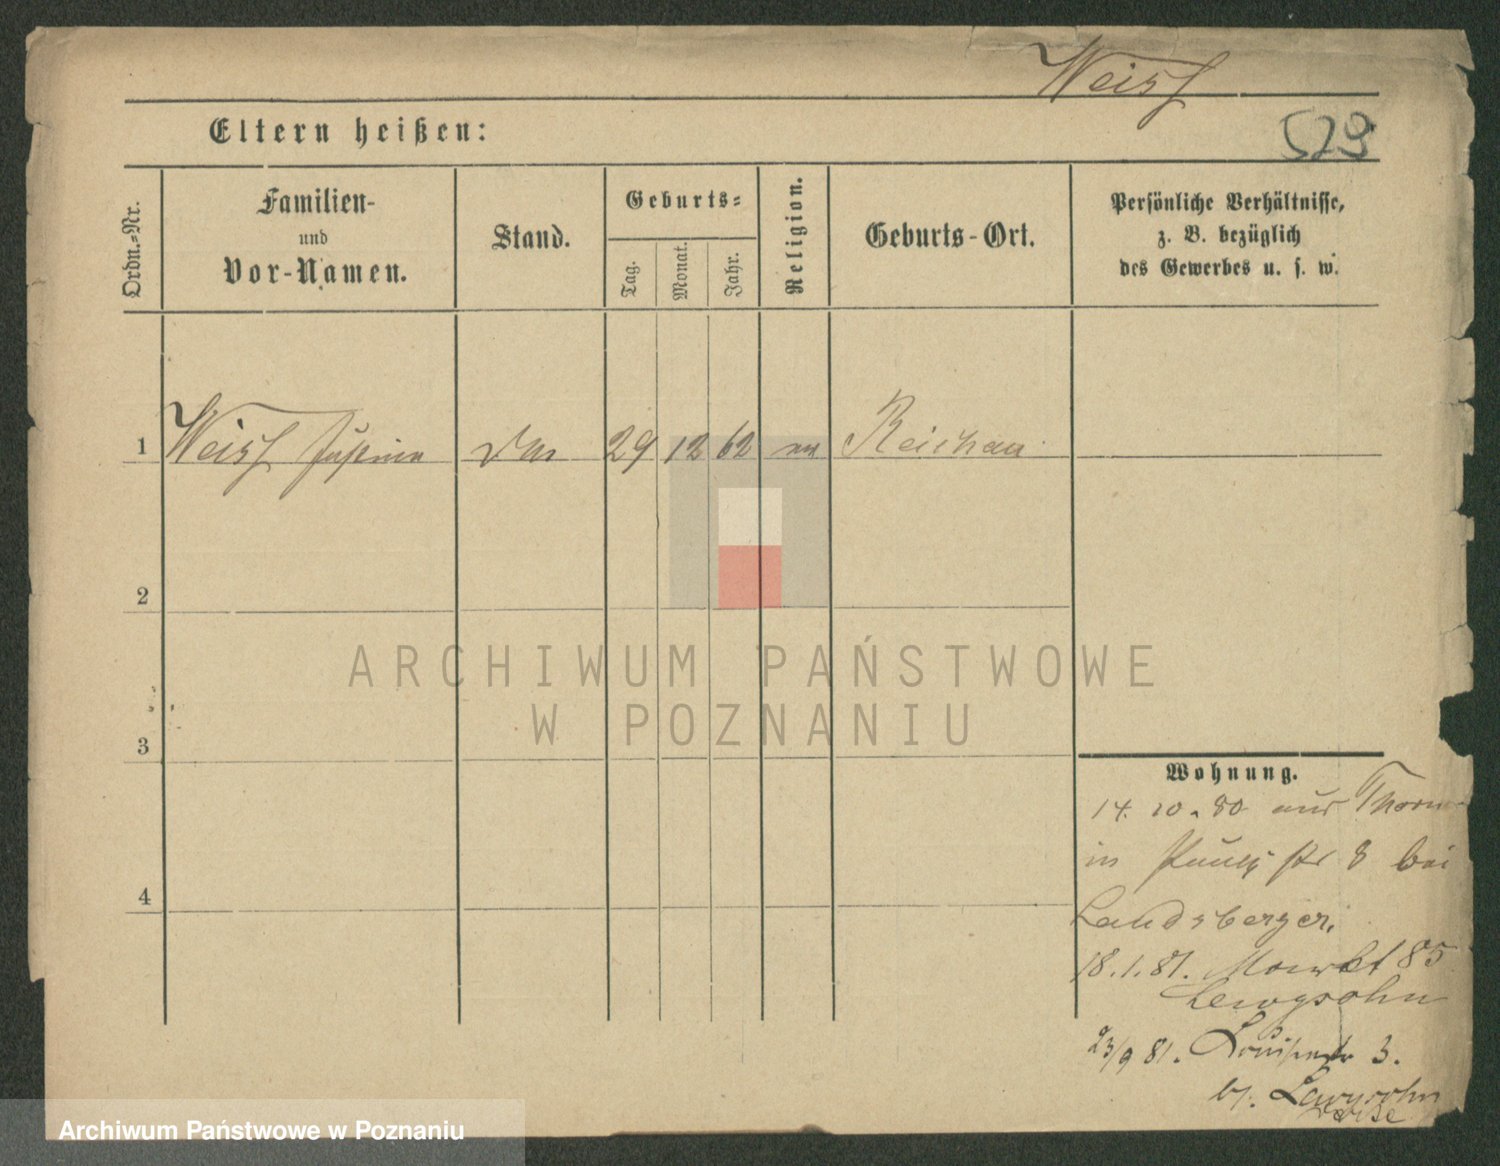 Weiss
529
Eltern heißen:
Ordn.=Nr.
Familien-
und
Vor-Namen.
Stand.
Geburts=
Tag.
Monat.
Jahr.
Religion.
Geburts-Ort.
Persönliche Verhältnisse,
z. B. bezüglich
des Gewerbes u. s. w.
1 Weiss 29 12 62 Reichau
2
ARCHIWUM PAŃSTWOWE
W POZNANIU
3
Wohnung.
14. 10. 80 aus Thorn
in str 8 bei
4
Landsberger.
18.1.81. Markt 85
Lewysohn
23/9 81. Louisenstr 3.
bj. Lewysohn
Archiwum Państwowe w Poznaniu